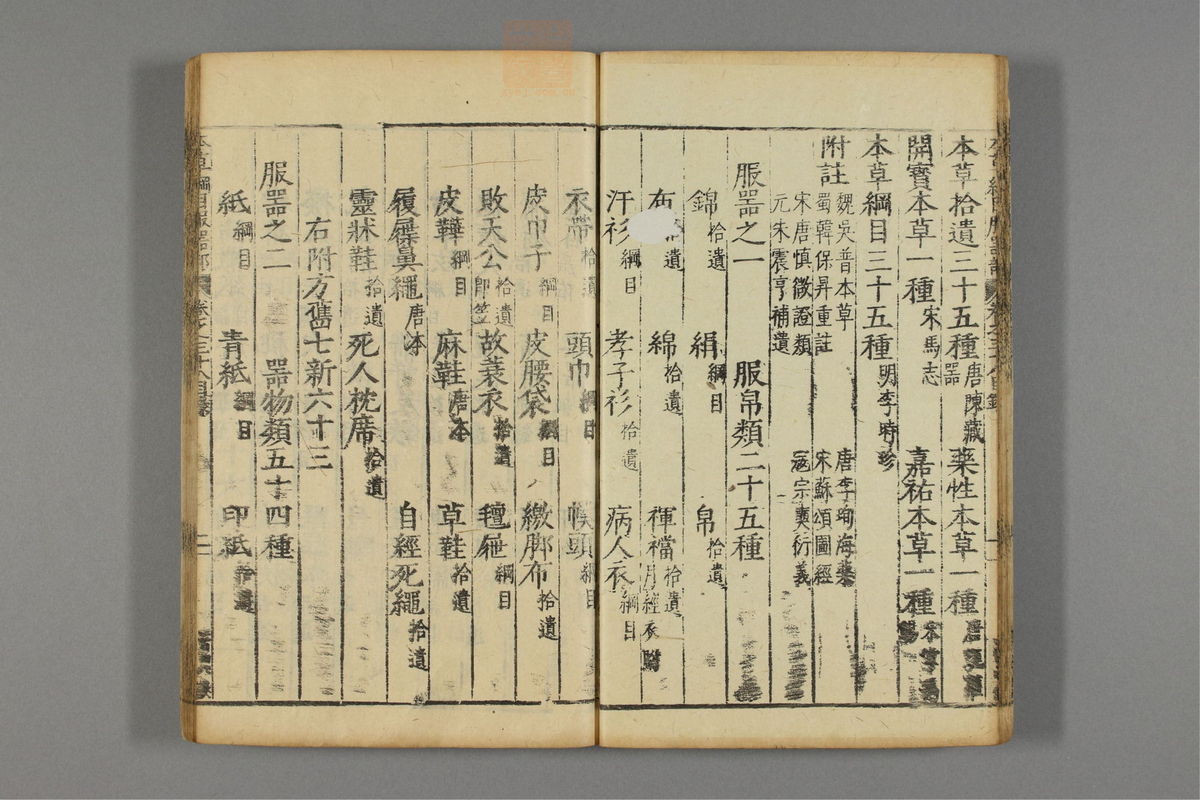 本草拾遺三十五種唐陳藏器 藥性本草一種
開寶本草一種宋馬志 嘉祐本草一種
本草綱目三十五種明李時珍
附註
魏吳普本草 唐李珣海藥
蜀韓保昇重註 宋蘇頌圖經
宋唐慎微證類 寇宗奭衍義
元朱震亨補遺
服器之一 服帛類二十五種
錦拾遺 絹綱目 帛拾遺
布拾遺 綿拾遺 褌襠拾遺月經衣附
汗衫綱目 孝子衫拾遺 病人衣綱目
衣帶拾遺 頭巾綱目 幞頭綱目
皮巾子綱目 皮腰袋綱目 繳腳布拾遺
敗天公拾遺即笠 故蓑衣拾遺 氊屜綱目
皮鞾綱目 麻鞋唐本 草鞋拾遺
履屧鼻繩唐本 自經死繩拾遺
靈牀鞋拾遺 死人枕席拾遺
右附方舊七新六十三
服器之二 器物類五十四種
紙綱目 青紙綱目 印紙拾遺
本草綱目服器部 卷之三十八目錄 二